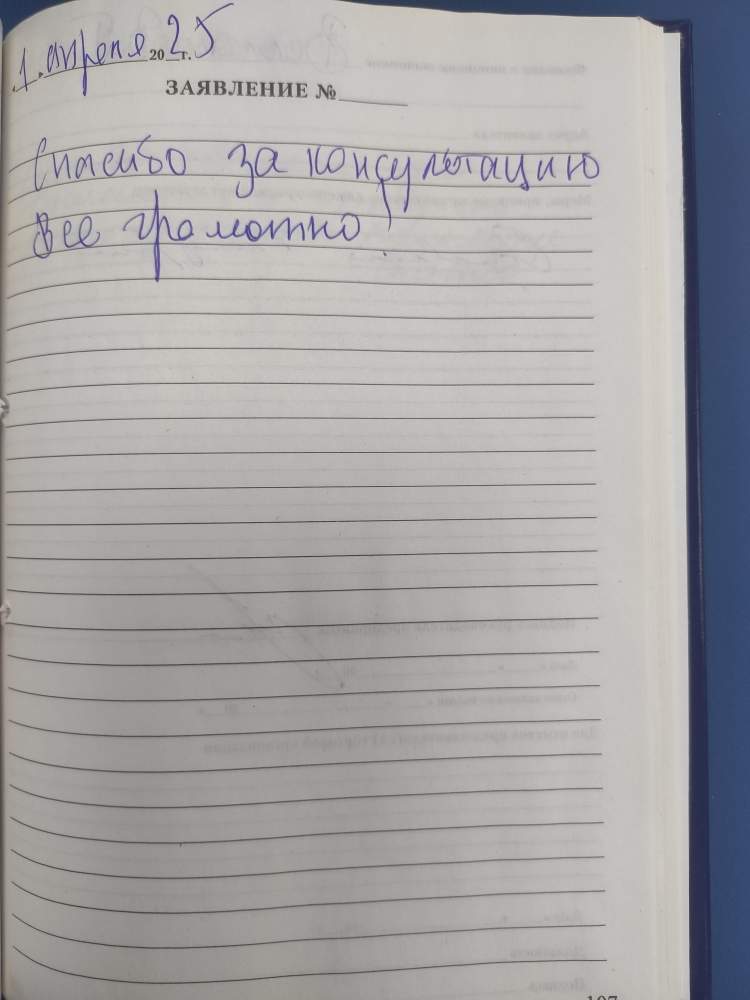 1. апреля 2025 г.
ЗАЯВЛЕНИЕ №
Спасибо за консультацию
Все грамотно